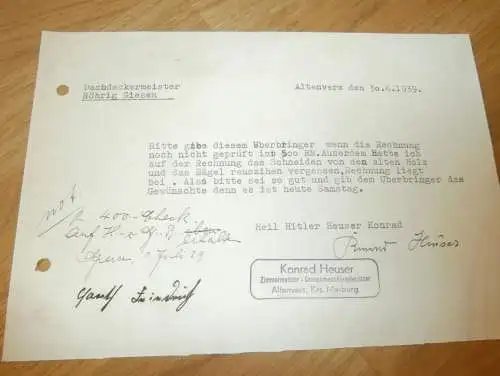 Dachdeckermeister
Röhrig Giesen
Altenvers den 30.6.1939.
Bitte gibe diesem Überbringer wenn die Rechnung
noch nicht geprüft ist 500 RM. Ausserdem Hatte ich
auf der Rechnung das Schneiden von den alten Holz
und das Nägel rausziehen vergessen, Rechnung liegt
bei . Also bitte sei so gut und gib dem Überbringer das
Gewünschte denn es ist heute Samstag.
Heil Hitler Heuser Konrad
not.
400-Scheck
auf
erhalten
1 Juli 39
Konrad Heuser
Konrad Heuser
Zimmermeister -
Altenvers, Krs. Marburg
Friedrich